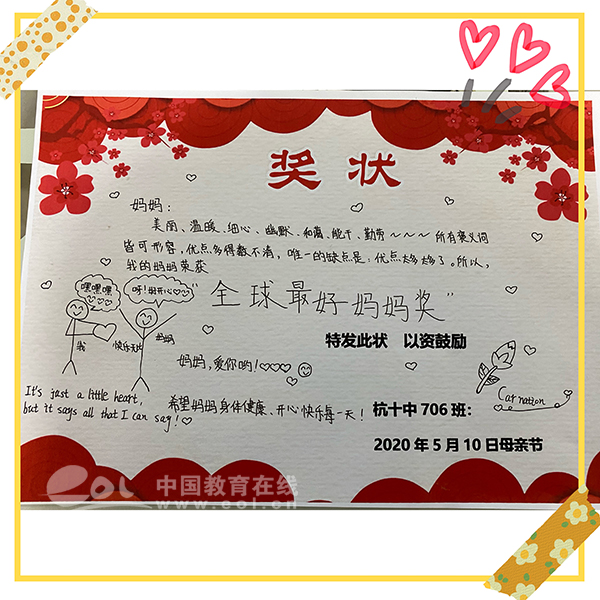 奖状
妈妈：
美丽、温暖、细心、幽默、和蔼、能干、勤劳~~~~所有褒义词
皆可形容，优点多得数不清，唯一的缺点是：优点太多太多了。所以，
我的妈妈荣获
"全球最好妈妈奖"
特发此状 以资鼓励
嘿嘿嘿
呀！好开心
我
快乐无比
妈妈
妈妈，爱你哟！
Carnation
It's just a little heart,
but it says all that I can say!
希望妈妈身体健康、开心快乐每一天！
杭十中706班：
2020年5月10日母亲节
eol 中国教育在线
www.eol.cn